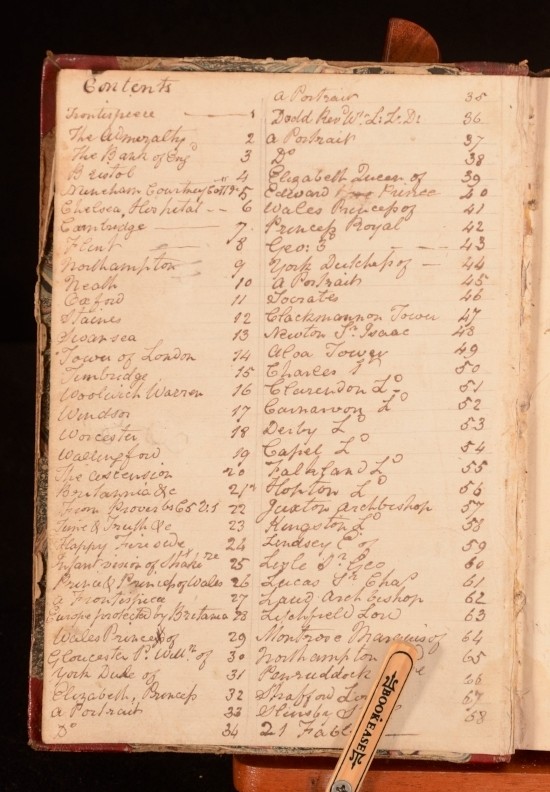 Contents
Frontispiece 1
The Admeralty 2
The Bank of Engd 3
Bristol 4
Nuneham Courtney 5
Chelsea Hospital -- 6
Cambridge 7
Flint 8
Northampton 9
Neath 10
Oxford 11
Staines 12
Swansea 13
Tower of London 14
Tunbridge 15
Woolwich Warren 16
Windsor 17
Worcester 18
Wallingford 19
The Ascension 20
Britannia &c 21
From Proverbs C5 2:1 22
Time & Truth &c 23
Happy Fire side 24
Infant vision of Shakre 25
Prince & Princess of Wales 26
a Frontispiece 27
Europe protected by Britania 28
Wales Princess of 29
Gloucester P. Willm of 30
York Duke of 31
Elizabeth, Princess 32
a Portrait 33
Do 34
a Portrait 35
Dodd Revd Wm L.L.D: 36
a Portrait 37
Do 38
Elizabeth Queen of 39
Edward Prince 40
Wales Princess of 41
Princess Royal 42
Geo: 3 43
York Dutchess of 44
a Portrait 45
Socrates 46
Clackmannon Tower 47
Newton Sr Isaac 48
Aloa Tower 49
Charles 1 50
Clarendon Ld 51
Carnarvon Ld 52
Derby Ld 53
Capel Ld 54
Falkland Ld 55
Hopton Ld 56
Juxton Archbishop 57
Kingston Ld 58
Lindsey E. of 59
Lisle Sr Geo 60
Lucas Sr Chas 61
Laud Archbishop 62
Litchfield Lord 63
Montrose Marquis of 64
Northampton 65
Penruddock 66
Strafford 67
Slingsby 68
21 Fabl
BOOKEASE